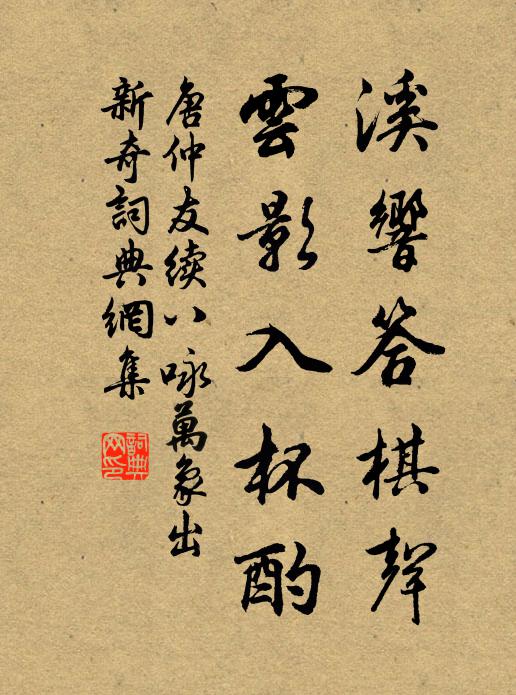 溪響答棋聲
雲影入杯酌
唐仲友續八咏萬象出
新奇詞典網集
詞典網印